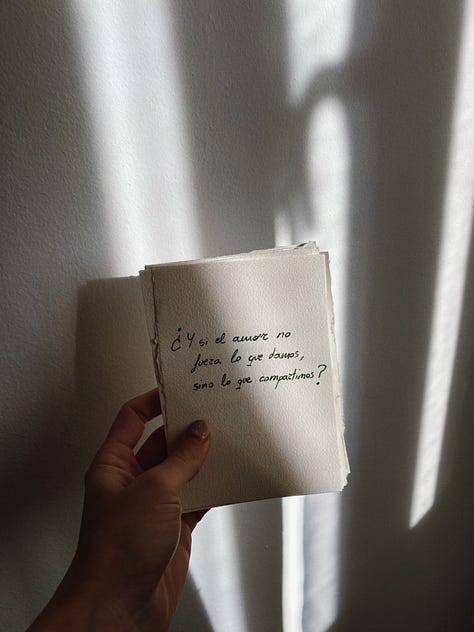 ¿Y si el amor no
fuera lo que damos,
sino lo que compartimos?